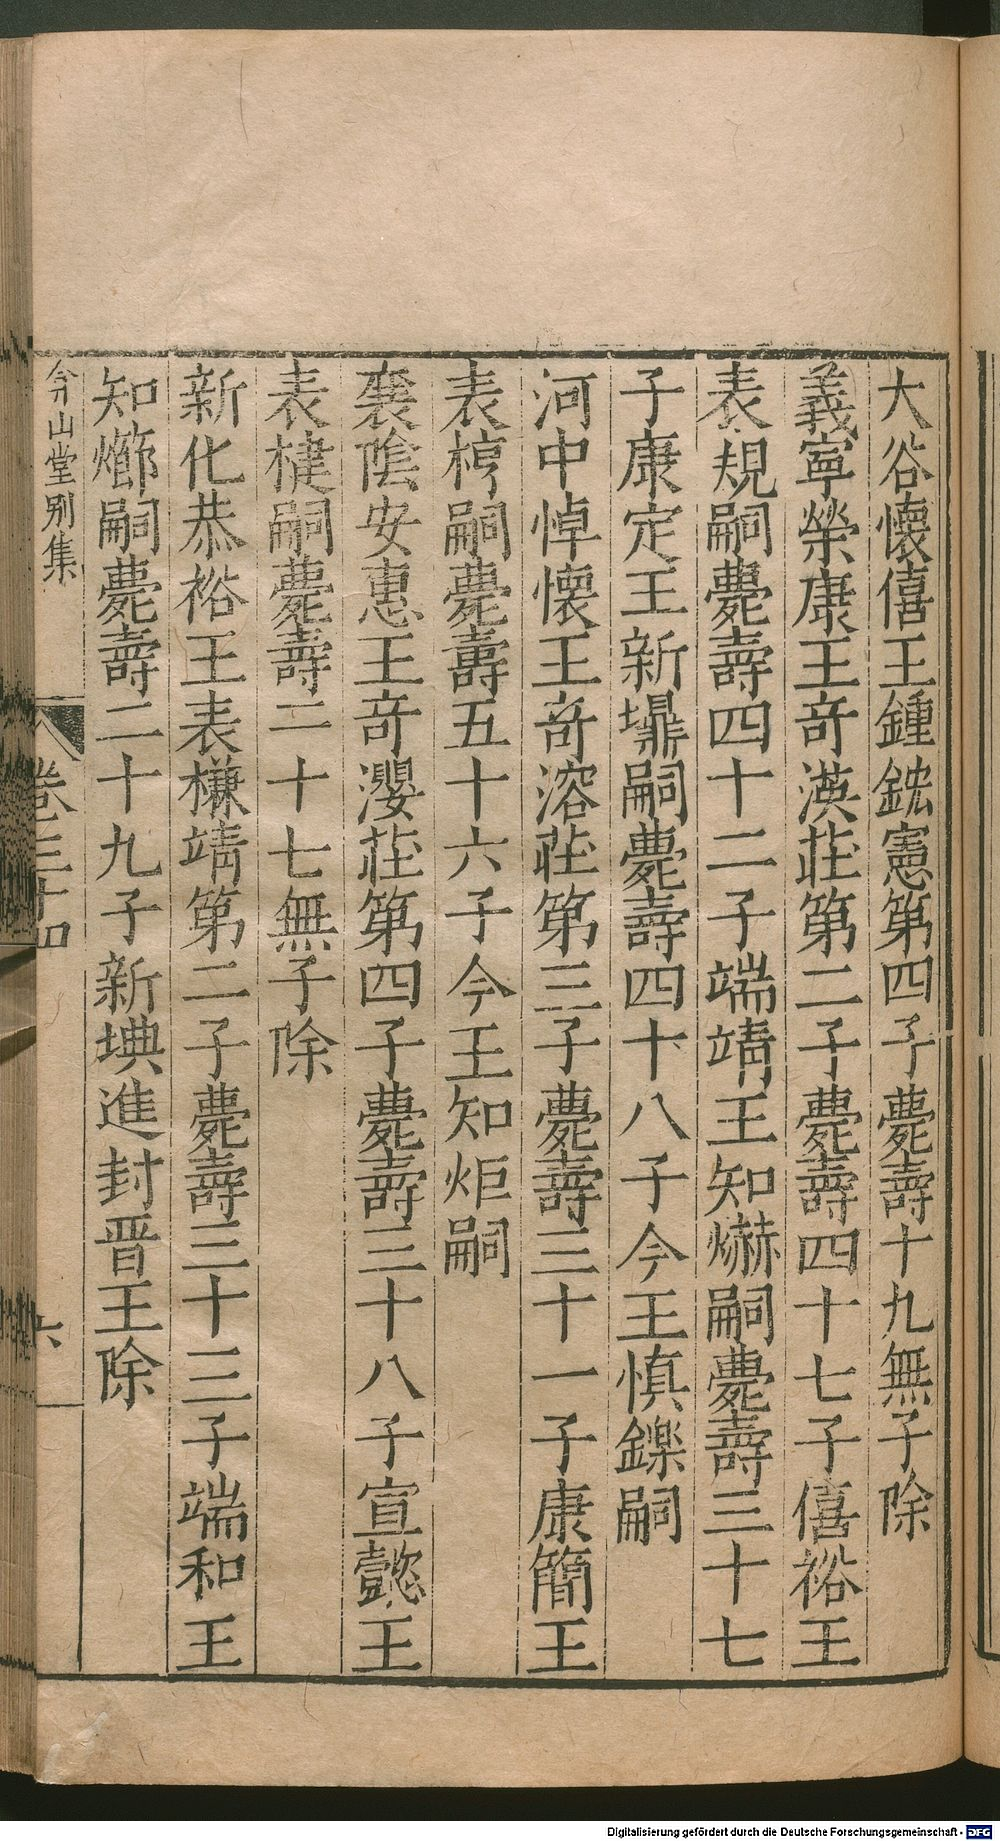 大谷懷僖王鍾鋎憲第四子薨壽十九無子除
義寧榮康王奇漢莊第二子薨壽四十七子僖裕王
表規嗣薨壽四十二子端靖王知爀嗣薨壽三十七
子康定王新𡑮嗣薨壽四十八子今王慎鏁嗣
河中悼懷王奇溶莊第三子薨壽三十一子康簡王
表梈嗣薨壽五十六子今王知炬嗣
襄陰安惠王奇灐莊第四子薨壽三十八子宣懿王
表楗嗣薨壽二十七無子除
新化恭裕王表槏靖第二子薨壽三十三子端和王
知㸅嗣薨壽二十九子新㙉進封晋王除
弇山堂别集
卷三十四
六
Digitalisierung gefördert durch die Deutsche Forschungsgemeinschaft - DFG